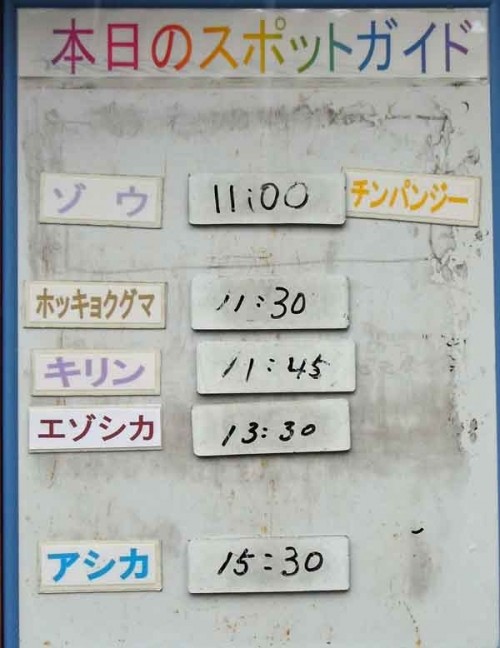 本日のスポットガイド
ゾウ 11:00 チンパンジー
ホッキョクグマ 11:30
キリン 11:45
エゾシカ 13:30
アシカ 15:30